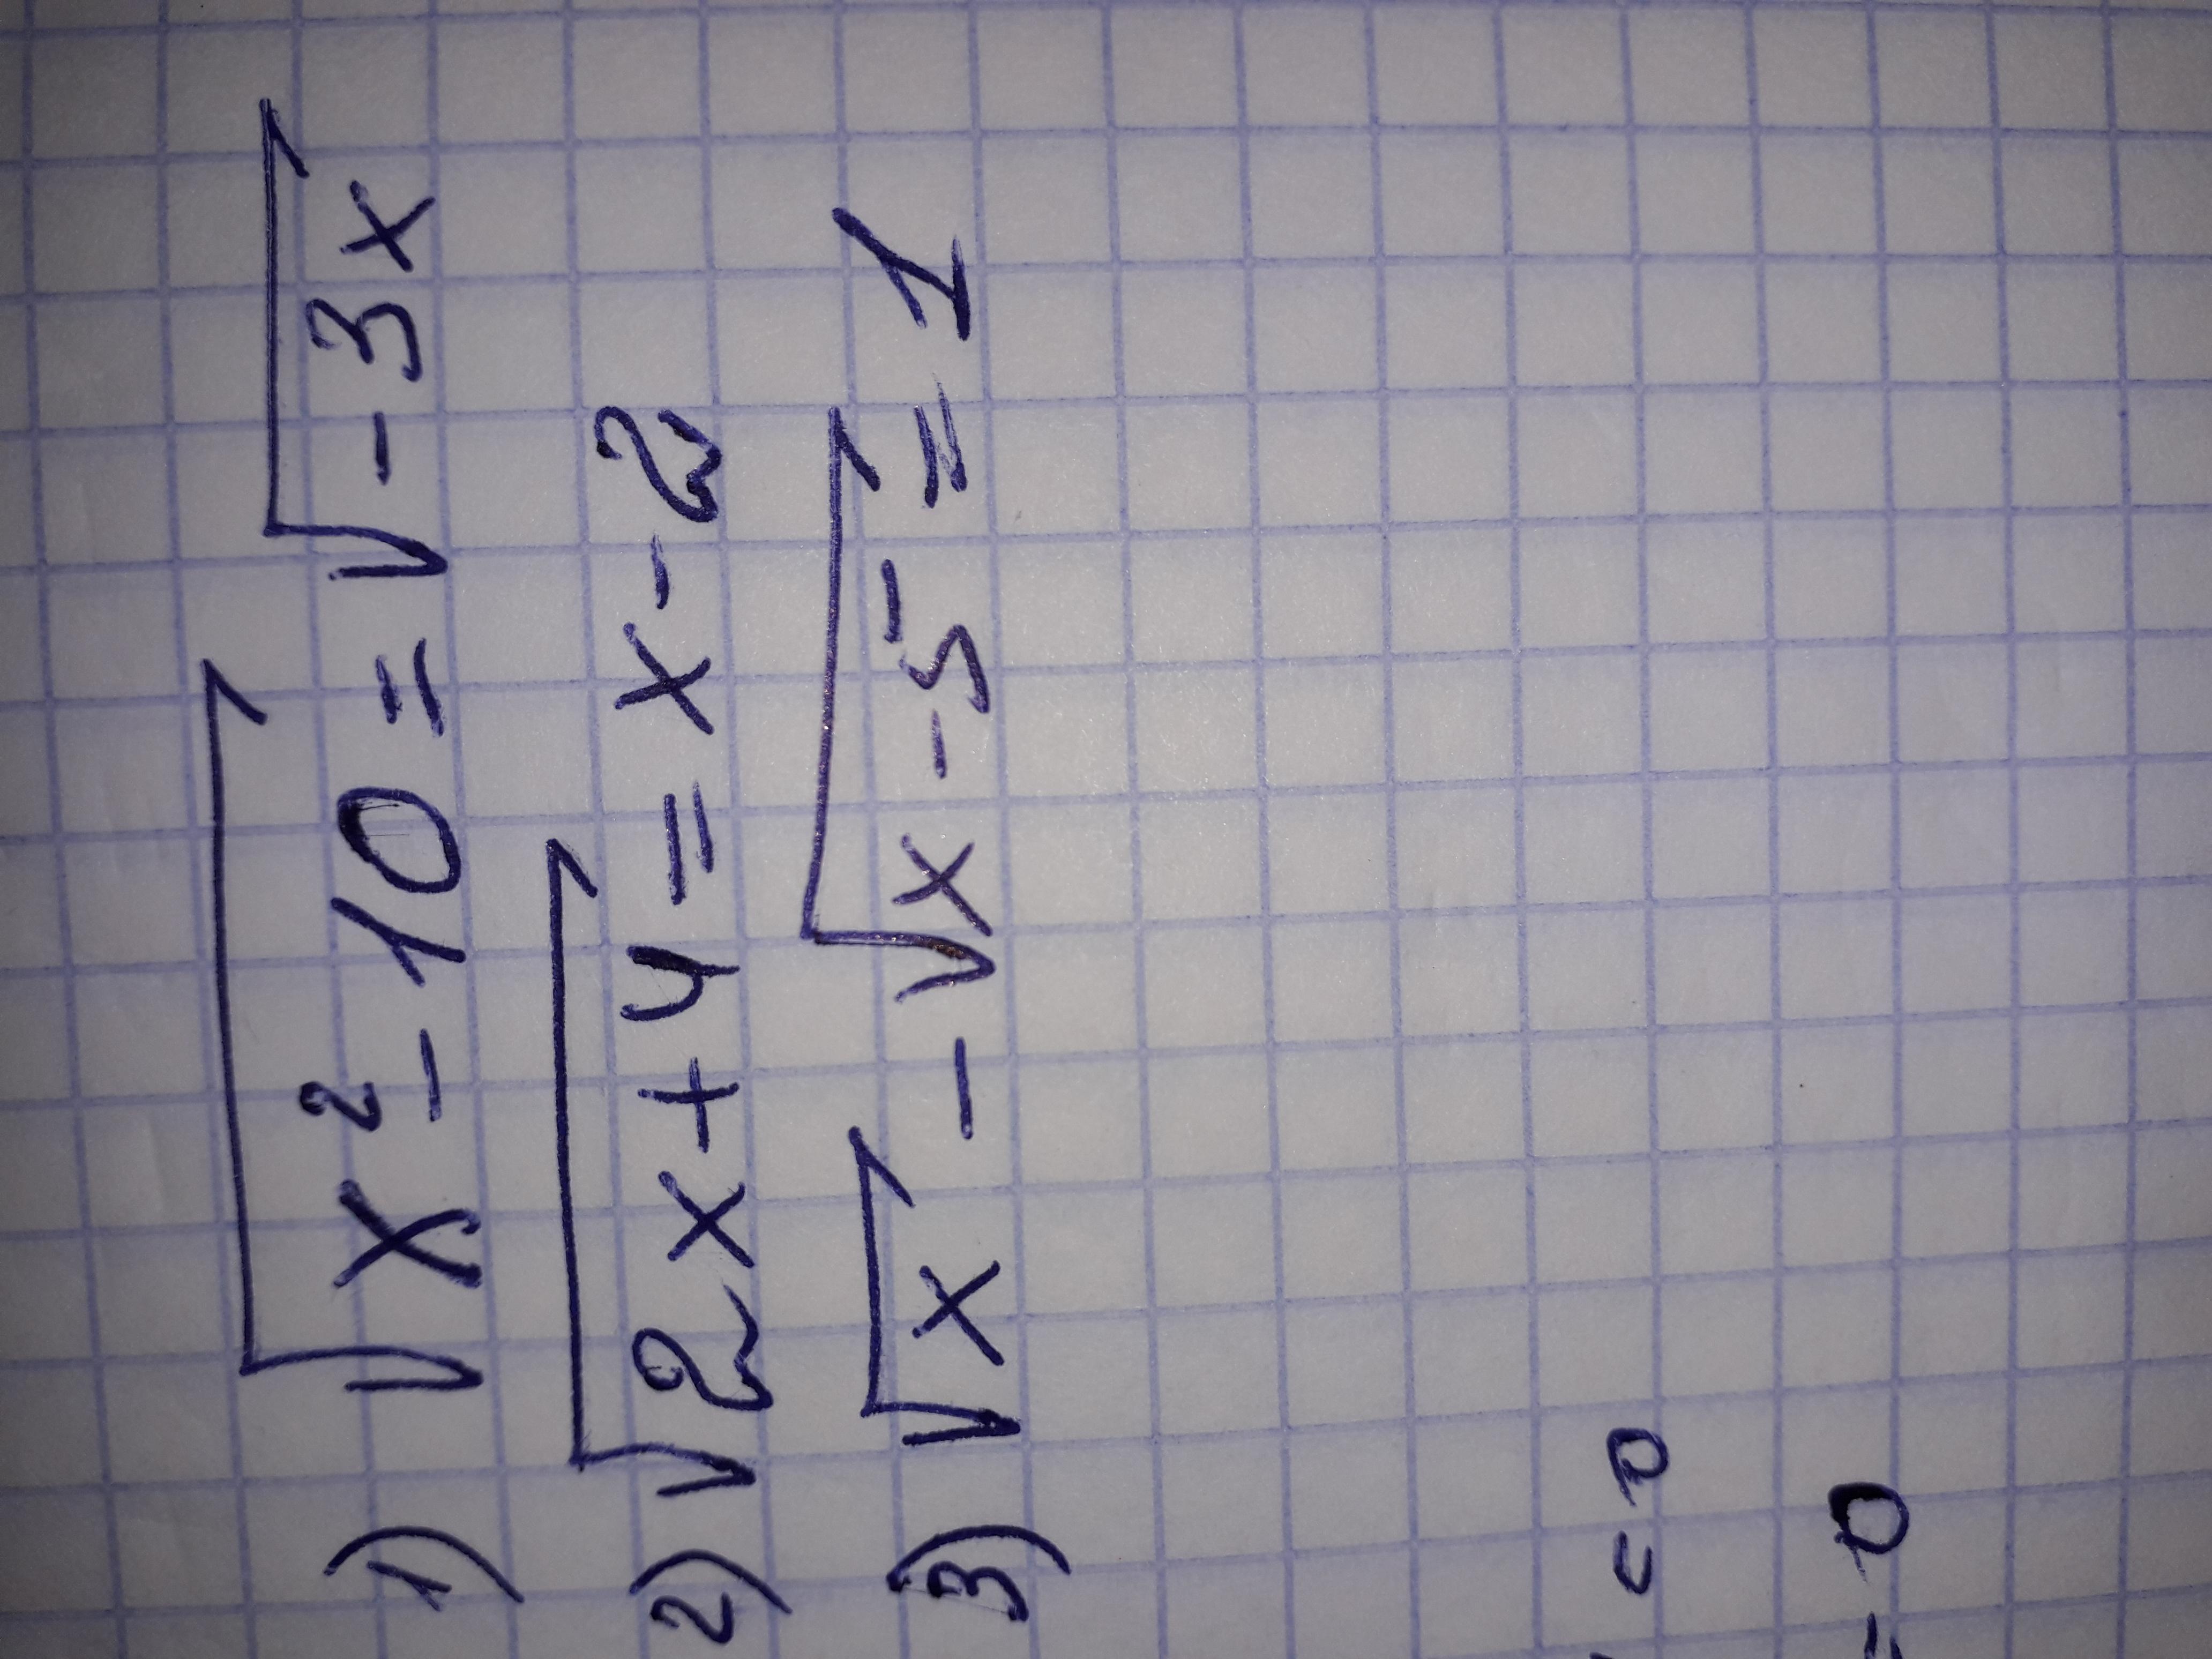 1) √x²-10 = √-3x
2) √2x+4 = x-2
3) √x - √x-5 = 1
= 0
= 0